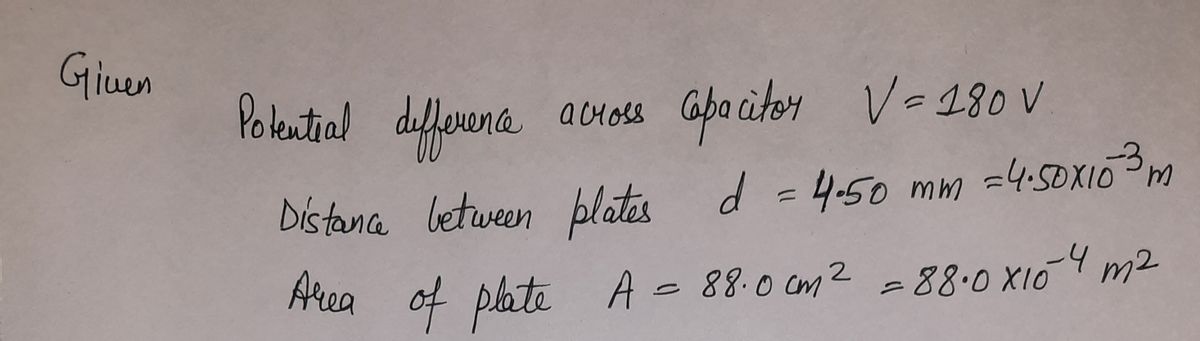 Given
Potential difference across Capacitor V = 180 V
Distance between plates d = 4.50 mm = 4.50X10⁻³ m
Area of plate A = 88.0 cm² = 88.0 X10⁻⁴ m²